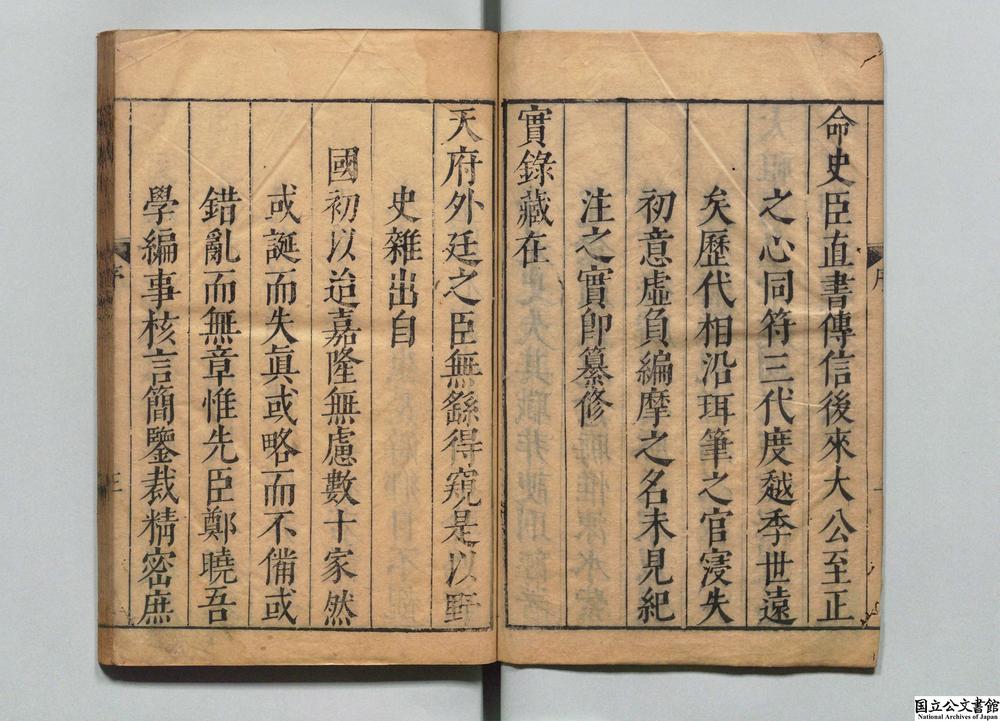 命史臣直書傳信後來大公至正
之心同符三代度越季世遠
矣歷代相沿珥筆之官寖失
初意虛負編摩之名未見紀
注之實即纂修
實錄藏在
天府外廷之臣無繇得窺是以野
史雜出自
國初以迨嘉隆無慮數十家然
或誕而失眞或略而不備或
錯亂而無章惟先臣鄭曉吾
學編事核言簡鑒裁精密庶
序
三
国立公文書館
National Archives of Japan